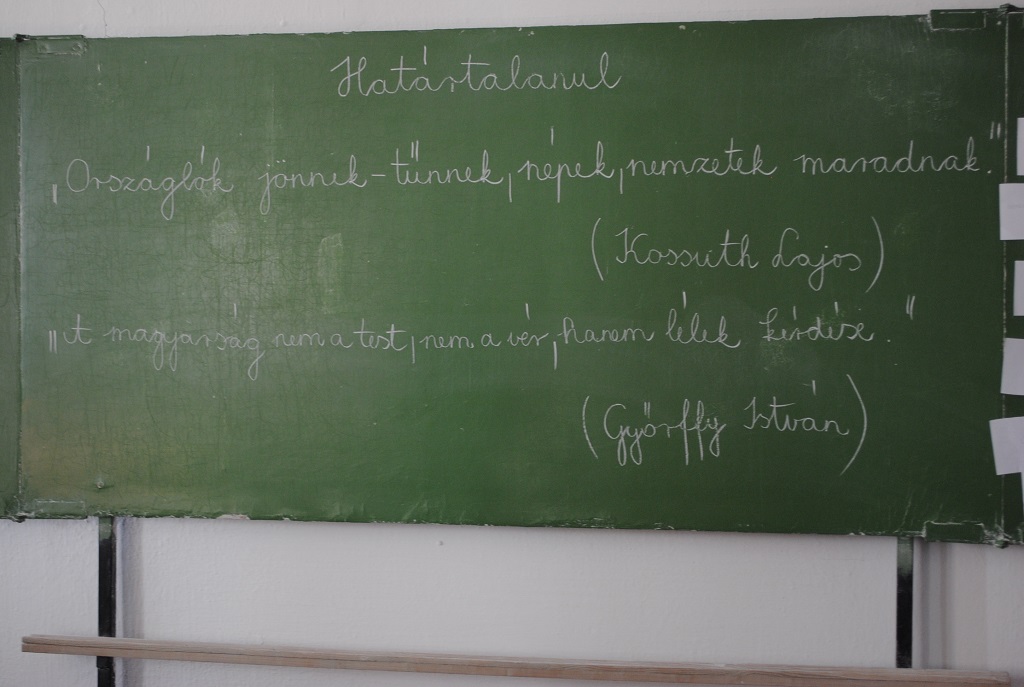 Határtalanul
„Országlók jönnek-tűnnek, népek, nemzetek maradnak."
(Kossuth Lajos)
„A magyarság nem a test, nem a vér, hanem lélek kérdése."
(Győrffy István)